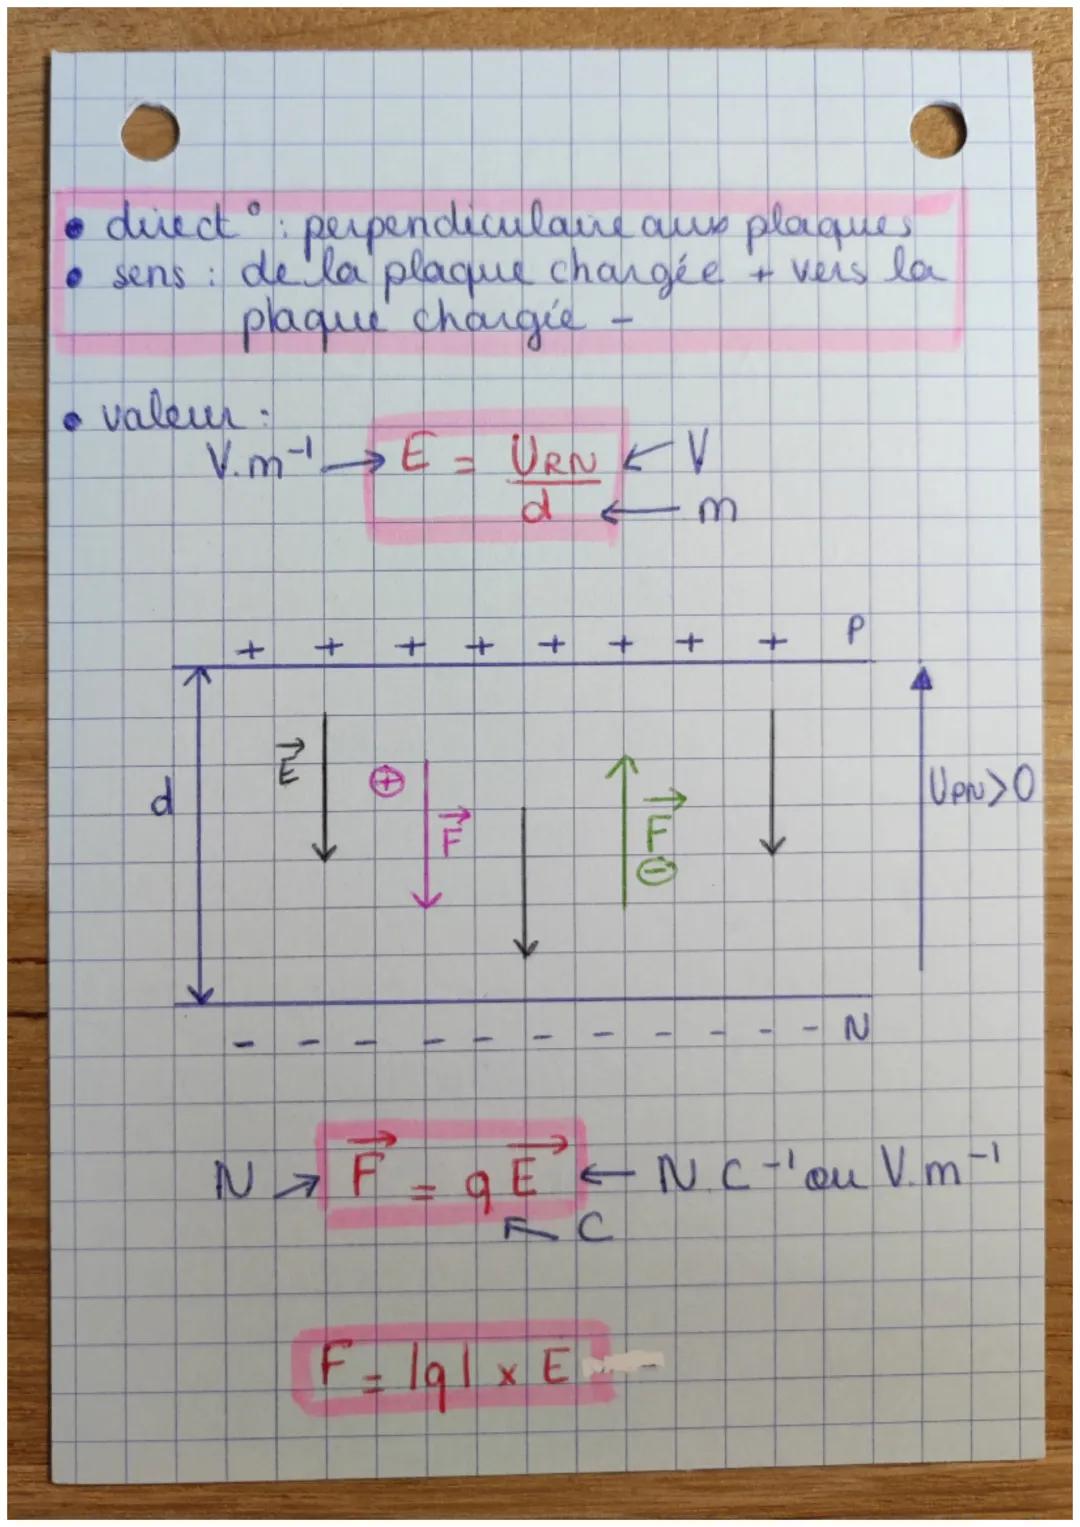 • direct° : perpendiculaire aux plaques
• sens : de la plaque chargée + vers la
plaque chargée -
• valeur :
V.m⁻¹ → E = URN / d ← V
← m
+ + + + + + + + P
d
E⃗
⊕ F⃗
F⃗ ⊖
UPN>0
- - - - - - - - - - - N
N → F⃗ = q E⃗ ← N.C⁻¹ ou V.m⁻¹
↖ C
F = |q| x E